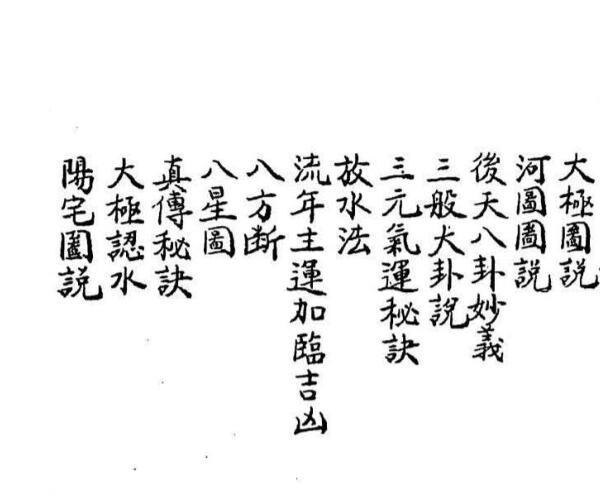 大極圖説
河圖圖説
後天八卦妙義
三般大卦説
三元氣運秘訣
放水法
流年主運加臨吉凶
八方断
八星圖
真傳秘訣
大極認水
陽宅圖説